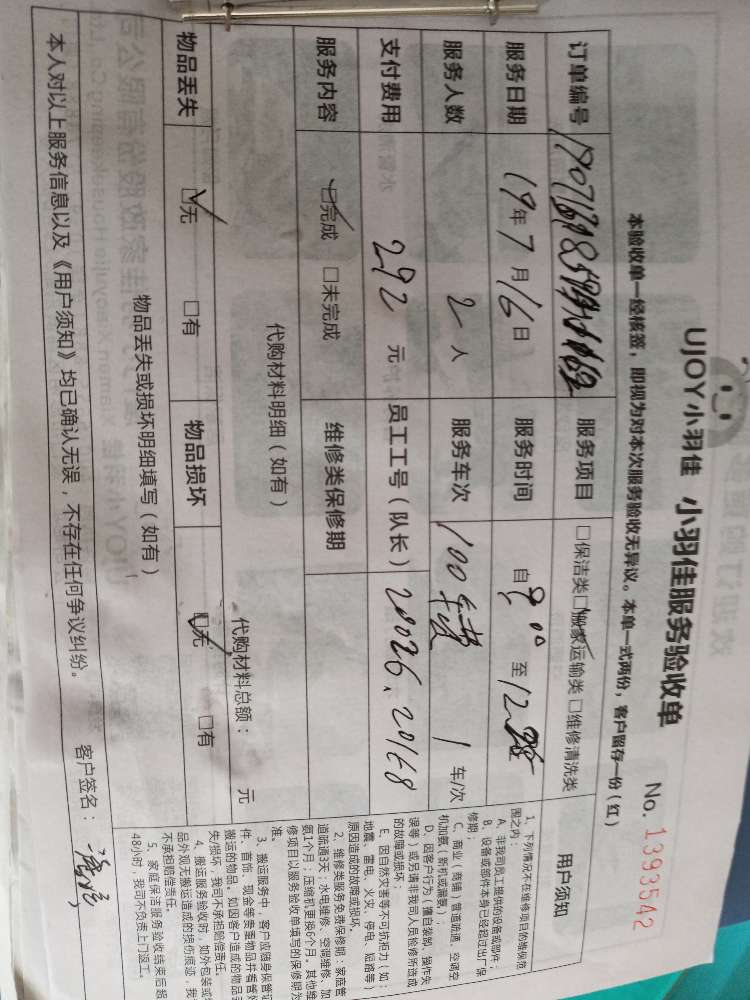 UJOY小羽佳 小羽佳服务验收单
No. 1393542
本验收单一经核签，即视为对本次服务验收无异议。本单一式两份，客户留存一份（红）
订单编号
服务项目 □保洁类□搬家运输类 □维修清洗类
服务日期 19年7月16日
服务时间 自 9:00 至
服务人数 2 人
服务车次 1 车/次
支付费用 292 元
员工工号（队长） 20026、20168
服务内容 □完成 □未完成
维修类保修期
代购材料明细（如有）
代购材料总额： 元
物品丢失 □无 □有
物品损坏 □无 □有
物品丢失或损坏明细填写（如有）
本人对以上服务信息以及《用户须知》均已确认无误，不存在任何争议纠纷。
客户签名：
用户须知
1、下列情况不在维修项目的维保范
围之内：
A、非我司员工提供的设备或部件；
B、设备或部件本身已经超过出厂保
修期；
C、商业（商铺）管道疏通、空调空
机加氨（新机或漏氨）；
D、因客户行为（擅自装卸、操作失
误等）或另请非我司人员检修所造成
的故障或损坏；
E、因自然灾害等不可抗拒力（如：
地震、雷电、火灾、停电、短路等）
原因造成的故障或损坏。
2、维修类服务免费保修期：家庭管
道疏通3天；水电维修、空调维修、加
氨1个月；压缩机更换6个月。其他维
修项目以服务验收单填写的保修期为
准。
3、搬运服务中，客户应随身保管证
件、首饰、现金等贵重物品并看管好
搬运的物品。如因客户造成的物品丢
失/损坏，我司不承担赔偿责任。
4、搬运服务验收时，如外包装或
品外观无搬运造成的损伤痕迹，我
不承担赔偿责任。
5、家庭保洁服务验收结束后超
48小时，我司不负责上门返工。